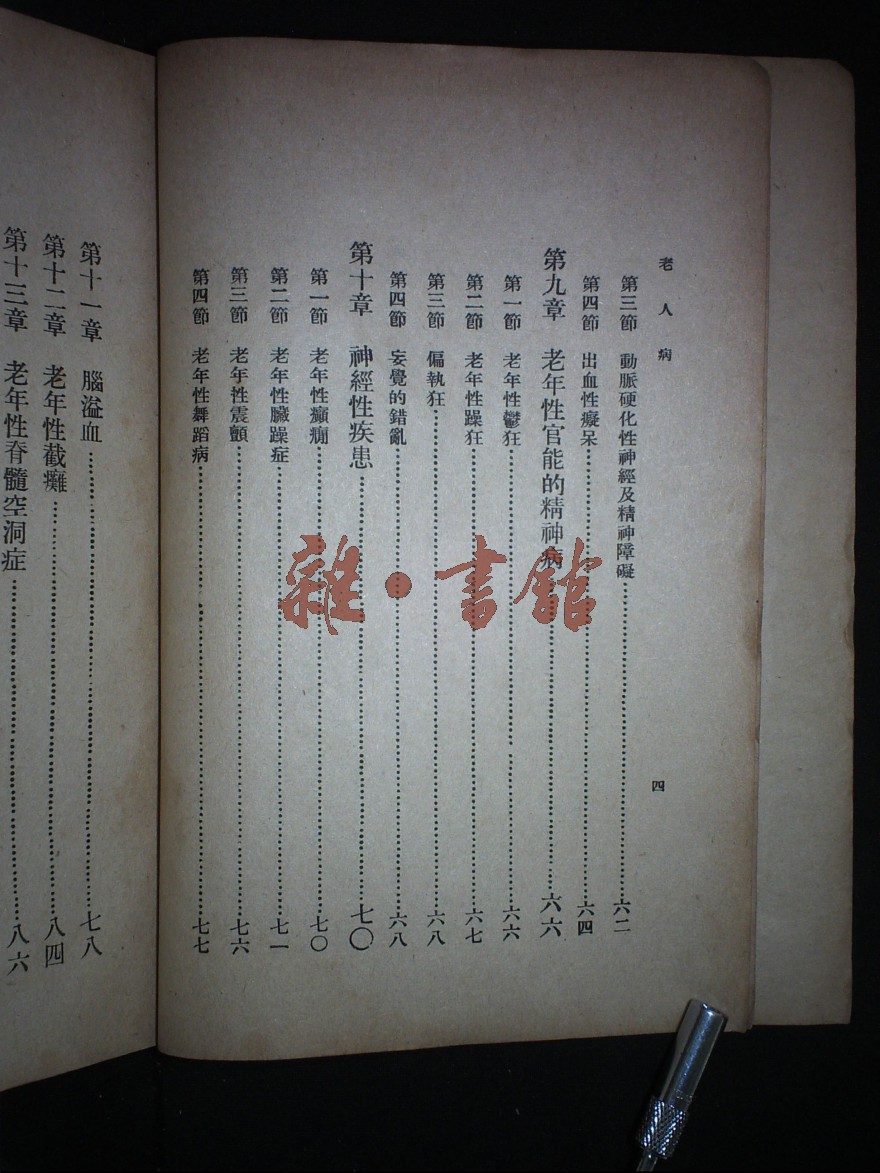 老人病
四
第三節 動脈硬化性神經及精神障礙……六二
第四節 出血性癡呆……六四
第九章 老年性官能的精神病……六六
第一節 老年性鬱狂……六六
第二節 老年性躁狂……六七
第三節 偏執狂……六八
第四節 妄覺的錯亂……六八
第十章 神經性疾患……七〇
第一節 老年性癲癇……七〇
第二節 老年性臟躁症……七一
第三節 老年性震顫……七六
第四節 老年性舞蹈病……七七
第十一章 腦溢血……七八
第十二章 老年性截癱……八四
第十三章 老年性脊髓空洞症……八六
雜·書館